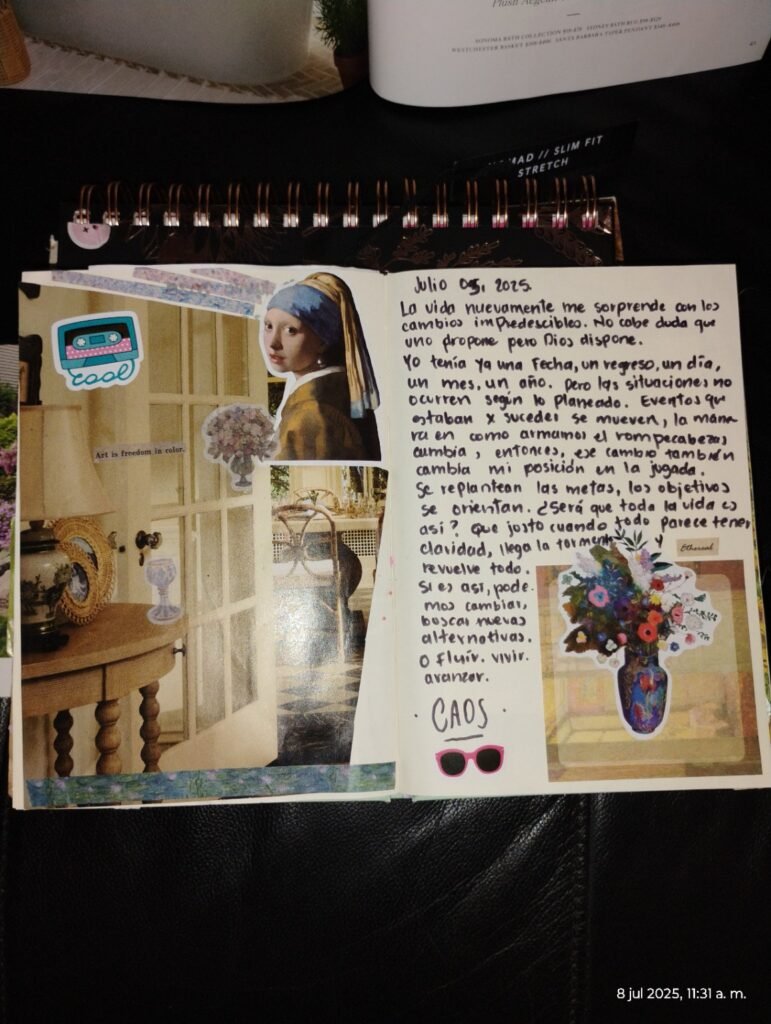 Plush Aegean
SONOMA BATH COLLECTION
WESTCHESTER BASKET
SANTA BARBARA TAPER PENDANT
NOMAD // SLIM FIT
STRETCH
cool
Art is freedom in color.
Julio 05, 2025.
La vida nuevamente me sorprende con los
cambios impredescibles. No cabe duda que
uno propone pero Dios dispone.
Yo tenía ya una fecha, un regreso, un día,
un mes, un año. pero las situaciones no
ocurren según lo planeado. Eventos que
estaban x suceder se mueven, la mane
ra en como armamos el rompecabezas
cambia, entonces, ese cambio también
cambia mi posición en la jugada.
Se replantean las metas, los objetivos
se orientan. ¿Será que toda la vida es
así? Que justo cuando todo parece tener
claridad, llega la tormenta y
revuelve todo.
Si es así, pode
mos cambiar,
buscar nuevas
alternativas.
O fluir. vivir.
avanzar.
Ethereal
· CAOS ·
8 jul 2025, 11:31 a. m.